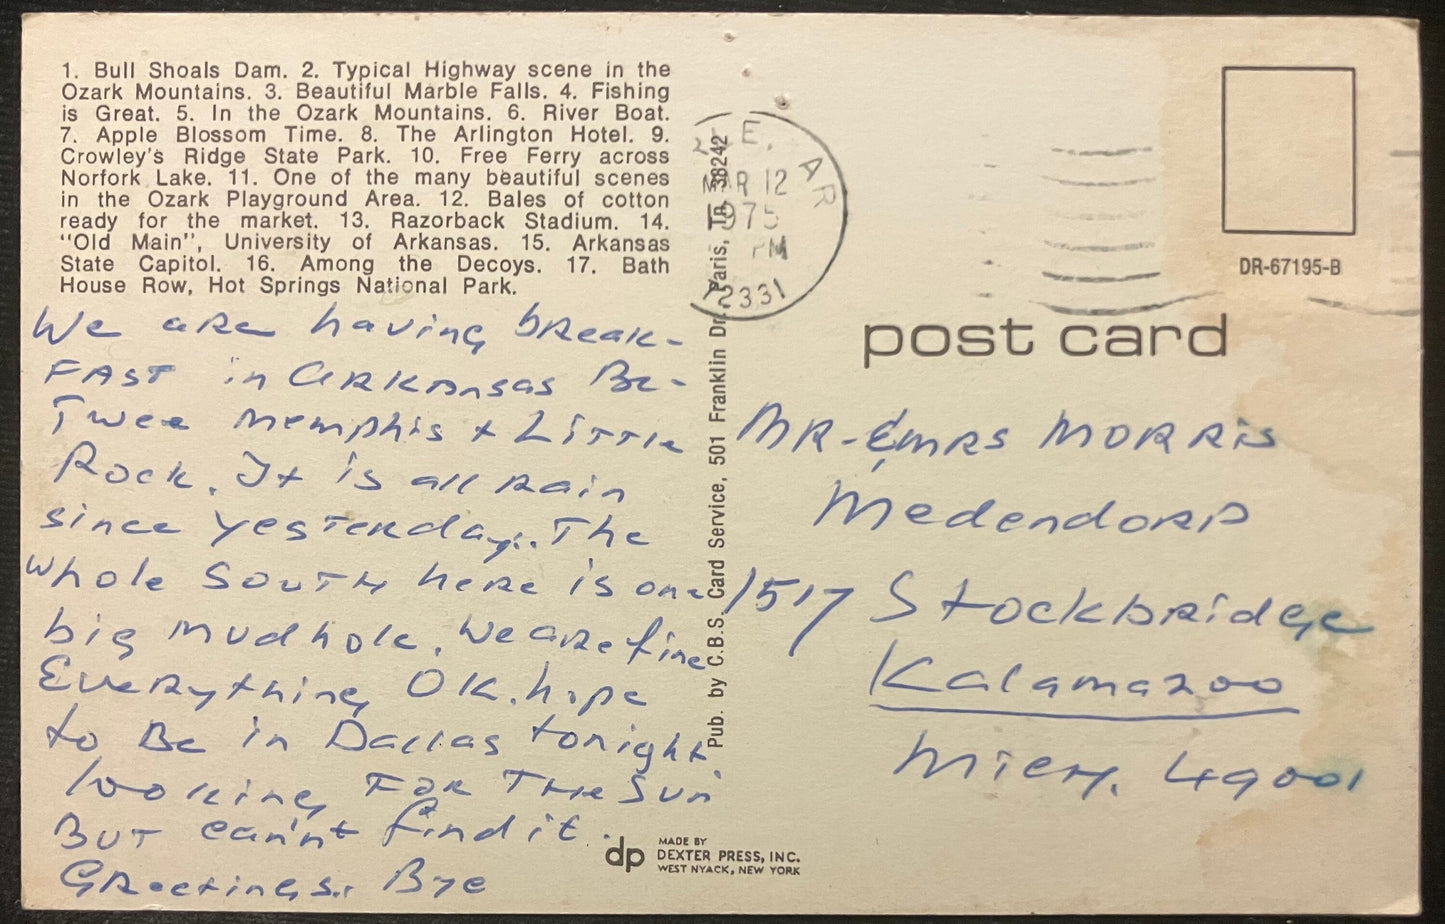 1. Bull Shoals Dam. 2. Typical Highway scene in the
Ozark Mountains. 3. Beautiful Marble Falls. 4. Fishing
is Great. 5. In the Ozark Mountains. 6. River Boat.
7. Apple Blossom Time. 8. The Arlington Hotel. 9.
Crowley's Ridge State Park. 10. Free Ferry across
Norfork Lake. 11. One of the many beautiful scenes
in the Ozark Playground Area. 12. Bales of cotton
ready for the market. 13. Razorback Stadium. 14.
"Old Main", University of Arkansas. 15. Arkansas
State Capitol. 16. Among the Decoys. 17. Bath
House Row, Hot Springs National Park.
We are having break-
FAST in ARKANSAS Be-
Twee Memphis + Little
Rock. It is all rain
since yesterday.. The
whole SOUTH here is one
big mudhole. We are fine
Everything OK. hope
to Be in Dallas tonight.
looking FOR THE Sun
BUT cann't find it.
Greetings. Bye
Pub. by C.B.S. Card Service, 501 Franklin Dr. Paris, Tn. 38242
E, AR
MAR 12
1975
PM
72331
DR-67195-B
post card
MR - & MRS MORRIS
Medendorp
1517 Stockbridge
Kalamazoo
Mich. 49001
dp
MADE BY
DEXTER PRESS, INC.
WEST NYACK, NEW YORK